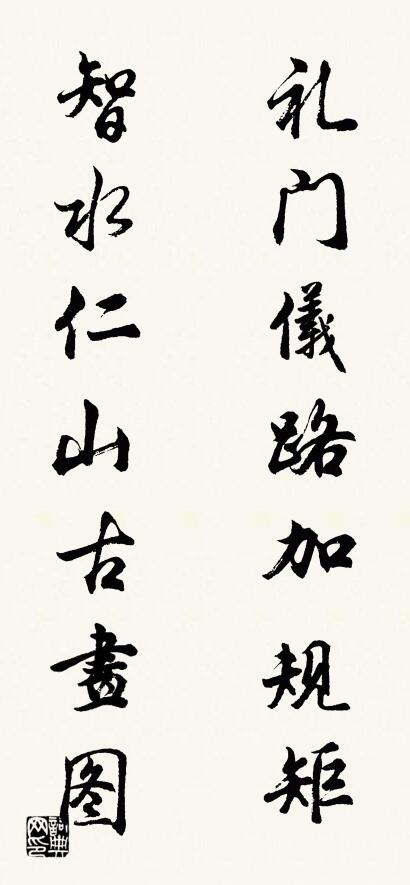 礼门儀路加規矩
智水仁山古畫图